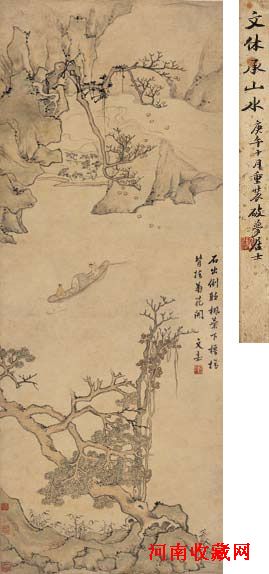 石出倒听枫叶下橹摇
背指菊花開
文嘉
文休承山水
庚午十月重裝破夢居士
河南收藏网